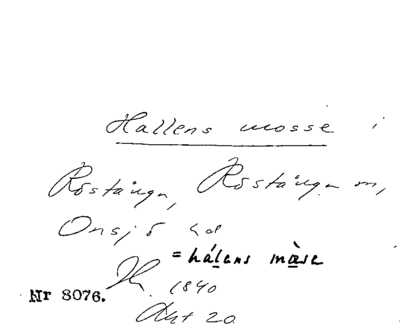 Hallens mosse i
Röstånga, Röstånga sn,
Onsjö hd
= hálens mà̱se
Nr 8076.
1840
Akt 20.